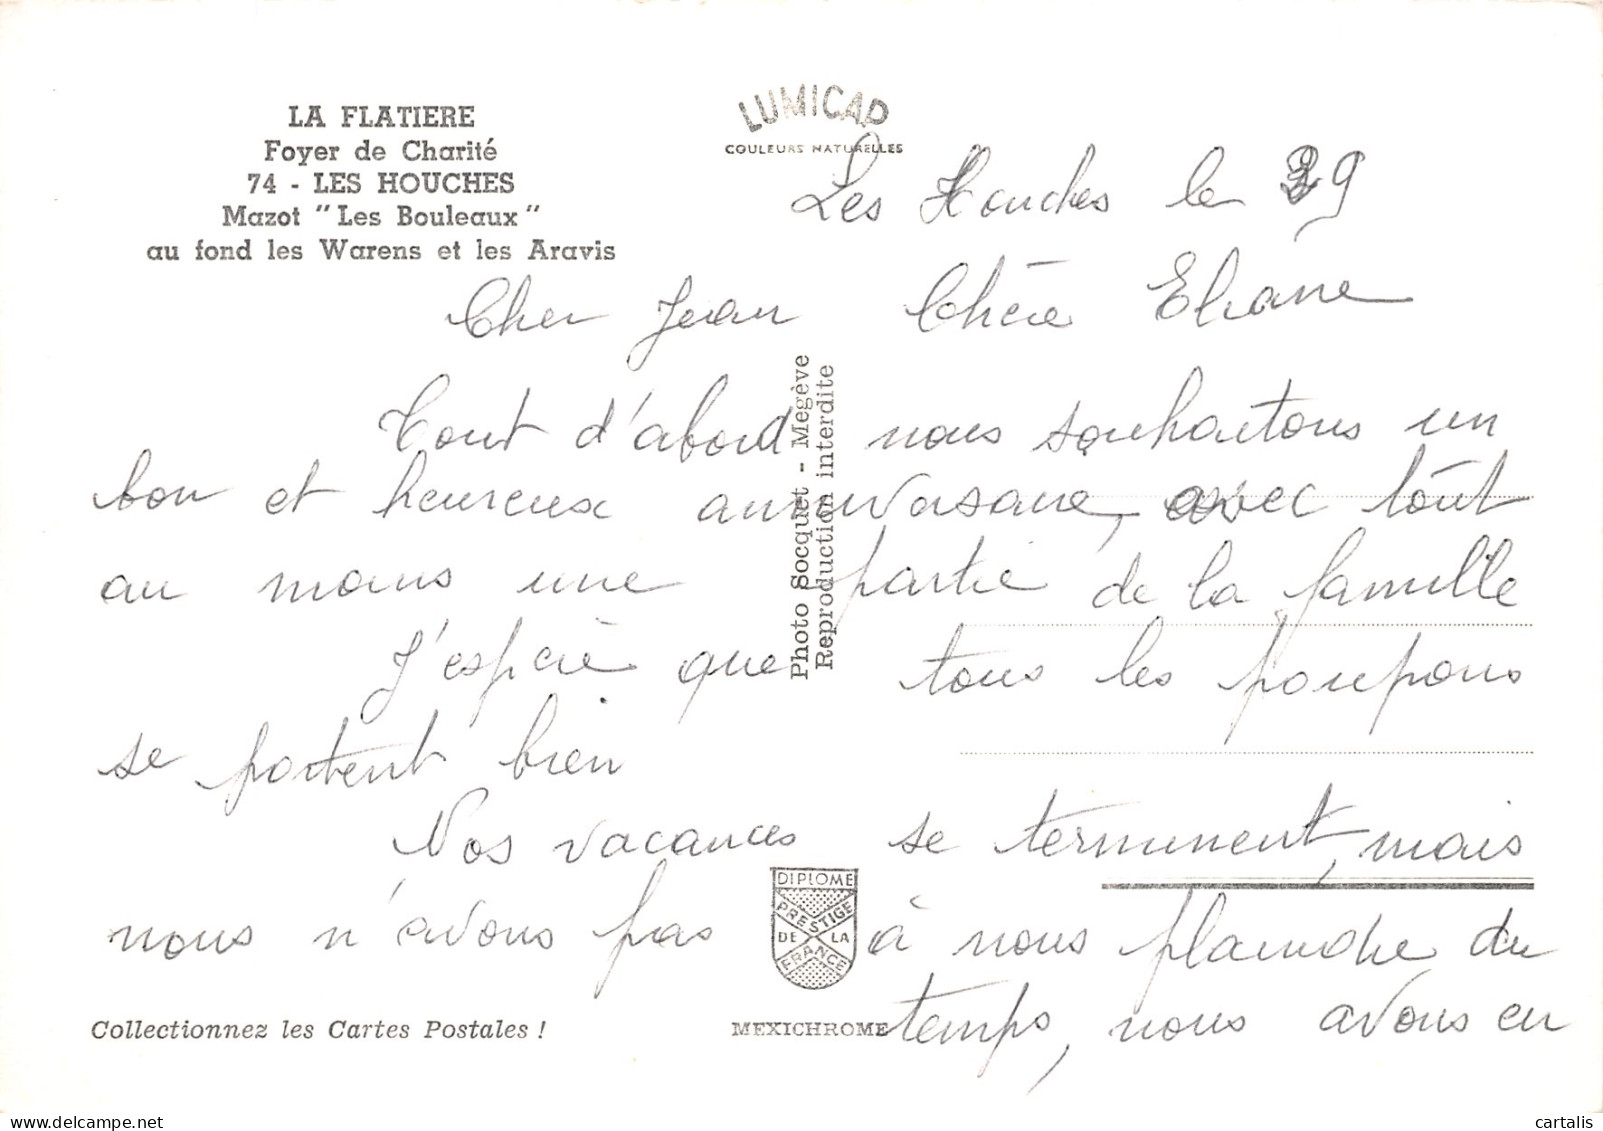 LA FLATIERE
Foyer de Charité
74 - LES HOUCHES
Mazot "Les Bouleaux"
au fond les Warens et les Aravis
LUMICAP
COULEURS NATURELLES
Les Houches le 29
Cher Jean Chère Eliane
Tout d'abord nous souhaitons un
bon et heureux anniversaire, avec tout
au moins une partie de la famille
J'espère que tous les poupons
se portent bien
Nos vacances se terminent, mais
nous n'avons pas à nous plaindre du
temps, nous avons eu
Photo Socquet - Megève
Reproduction interdite
DIPLOME
PRESTIGE
DE LA
FRANCE
Collectionnez les Cartes Postales !
MEXICHROME
delcampe.net
cartalis